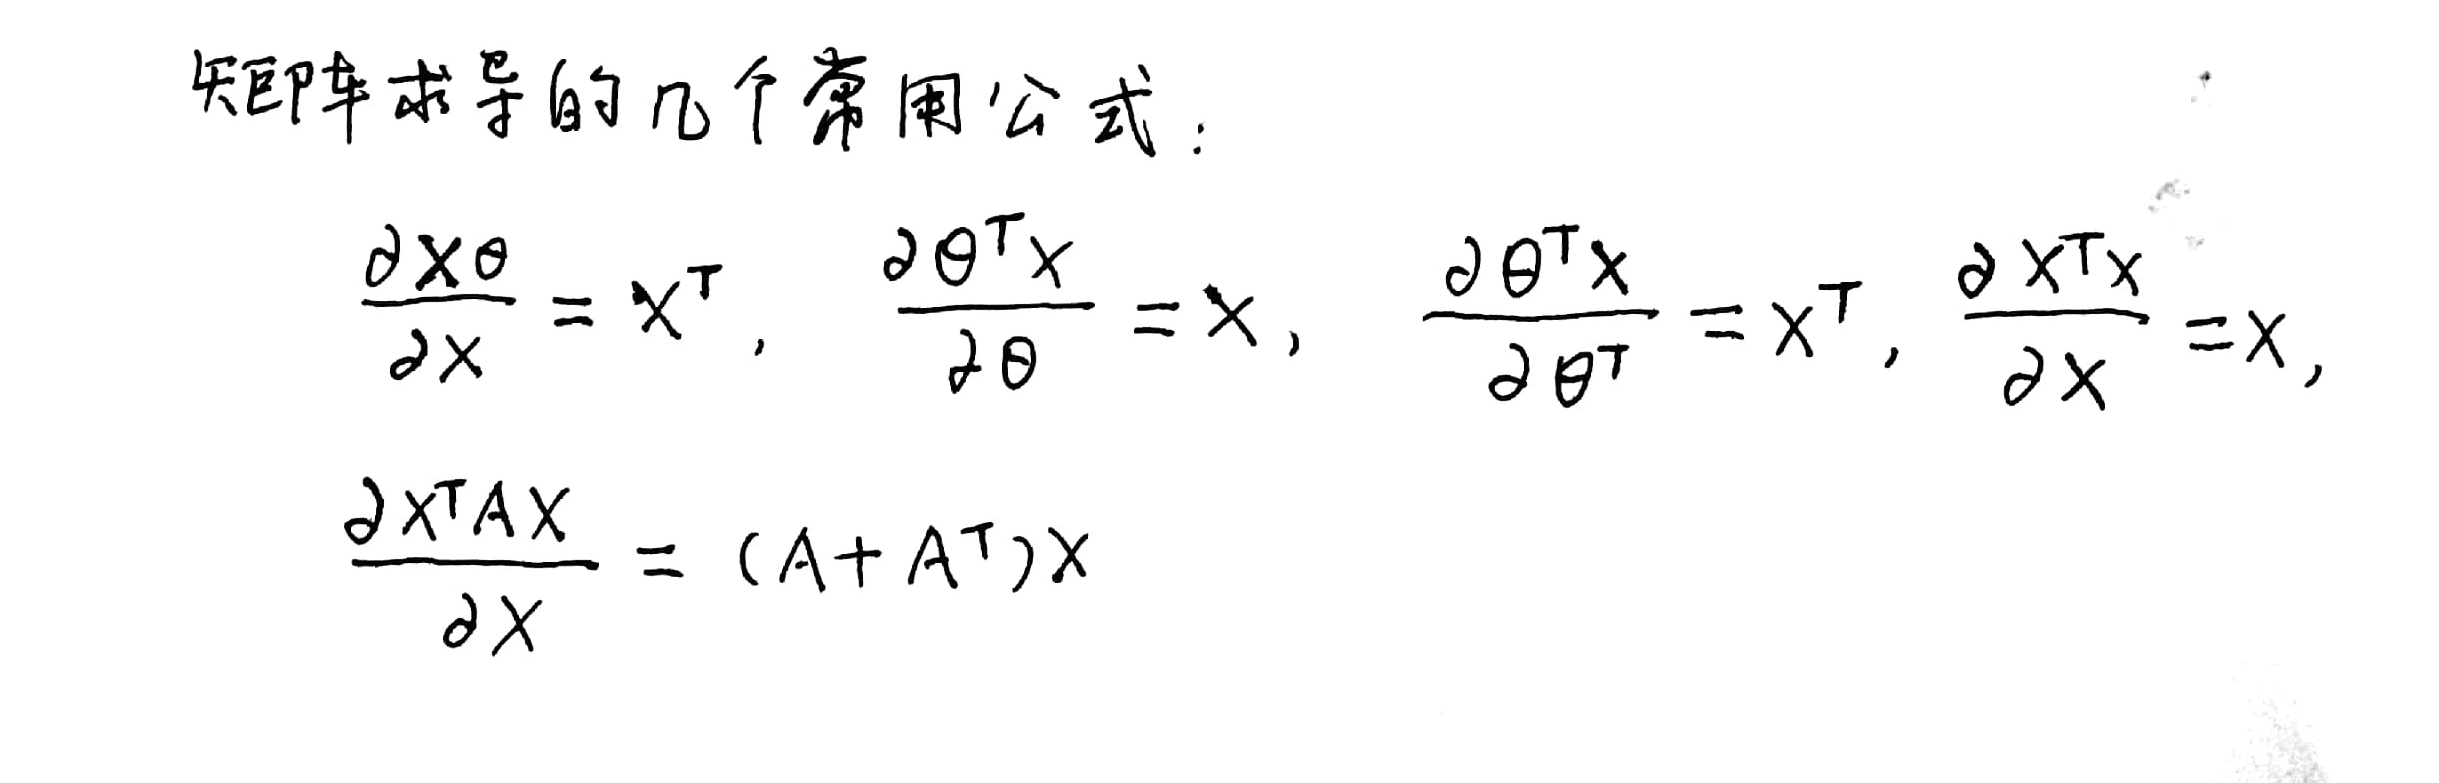 矩阵求导的几个常用公式：
∂Xθ/∂X = X^T, ∂θ^T X/∂θ = X, ∂θ^T X/∂θ^T = X^T, ∂X^T X/∂X = X,
∂X^T A X/∂X = (A + A^T)X